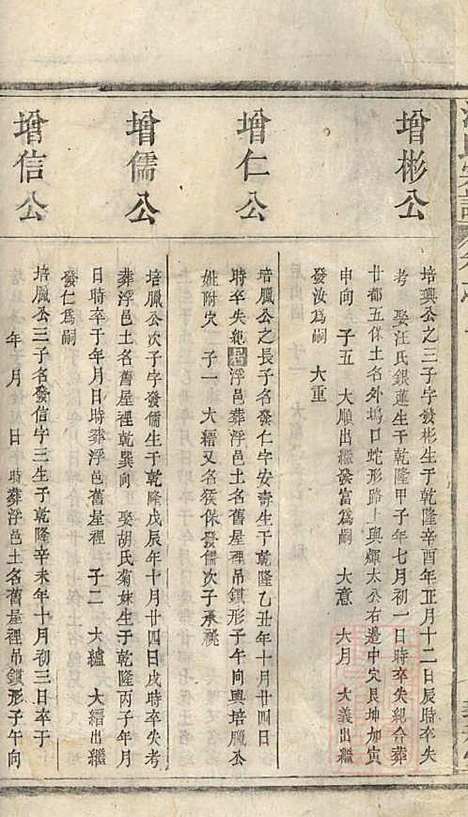 增彬公
培興公之三子字發彬生于乾隆辛酉年正月十二日辰時卒失
考　娶汪氏銀蓮生于乾隆甲子年七月初一日時卒失紀合葬
廿都五保土名外塢口蛇形路上與輝太公右邊中穴艮坤加寅
申向　子五　大順出繼發富為嗣　大意　大月　大義出繼
發汝為嗣　大重
增仁公
培臘公之長子名發仁字安壽生于乾隆乙丑年十月廿四日
時卒失紀　浮邑葬浮邑土名舊屋裡吊鎖形子午向與培臘公
妣附穴　子一　大縉又名侯保發儒次子承祧
增儒公
培臘公次子字發儒生于乾隆戊辰年十月廿四日戌時卒失考
葬浮邑土名舊屋裡乾巽向　娶胡氏菊妹生于乾隆丙子年月
日時卒于年月日時葬浮邑舊屋裡　子二　大纑　大縉出繼
發仁為嗣
增信公
培臘公三子名發信字三生于乾隆辛未年十月初三日卒于
年　月　日　時葬浮邑土名舊屋裡吊鎖形子午向